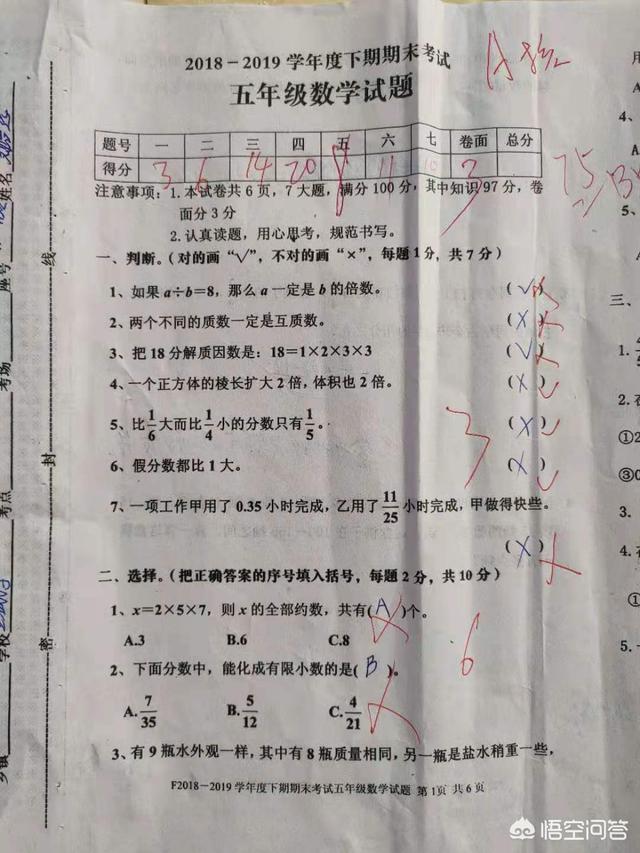 2018－2019 学年度下期期末考试
五年级数学试题
题号 一 二 三 四 五 六 七 卷面 总分
得分 3 6 14 20 8 11 10 3
注意事项：1. 本试卷共 6 页，7 大题，满分 100 分，其中知识 97 分，卷
面分 3 分
2. 认真读题，用心思考，规范书写。
一、判断。（对的画“√”，不对的画“×”，每题 1 分，共 7 分）
1、如果 a÷b=8，那么 a 一定是 b 的倍数。 （√）
2、两个不同的质数一定是互质数。 （×）
3、把 18 分解质因数是：18=1×2×3×3 （√）
4、一个正方体的棱长扩大 2 倍，体积也 2 倍。 （×）
5、比 1/6 大而比 1/4 小的分数只有 1/5 。 （×）
6、假分数都比 1 大。 （×）
3
7、一项工作甲用了 0.35 小时完成，乙用了 11/25 小时完成，甲做得快些。
（×）
二、选择。（把正确答案的序号填入括号，每题 2 分，共 10 分）
1、x＝2×5×7，则 x 的全部约数，共有（A）个。
A.3 B.6 C.8
6
2、下面分数中，能化成有限小数的是（B）。
A. 7/35 B. 5/12 C. 4/21
3、有 9 瓶水外观一样，其中有 8 瓶质量相同，另一瓶是盐水稍重一些，
F2018－2019 学年度下期期末考试五年级数学试题 第 1 页 共 6 页
姓名
座号
考场
考点
学校
乡镇
线
封
密
75
三、
1.
2.
③0
4.
①
5.
悟空问答